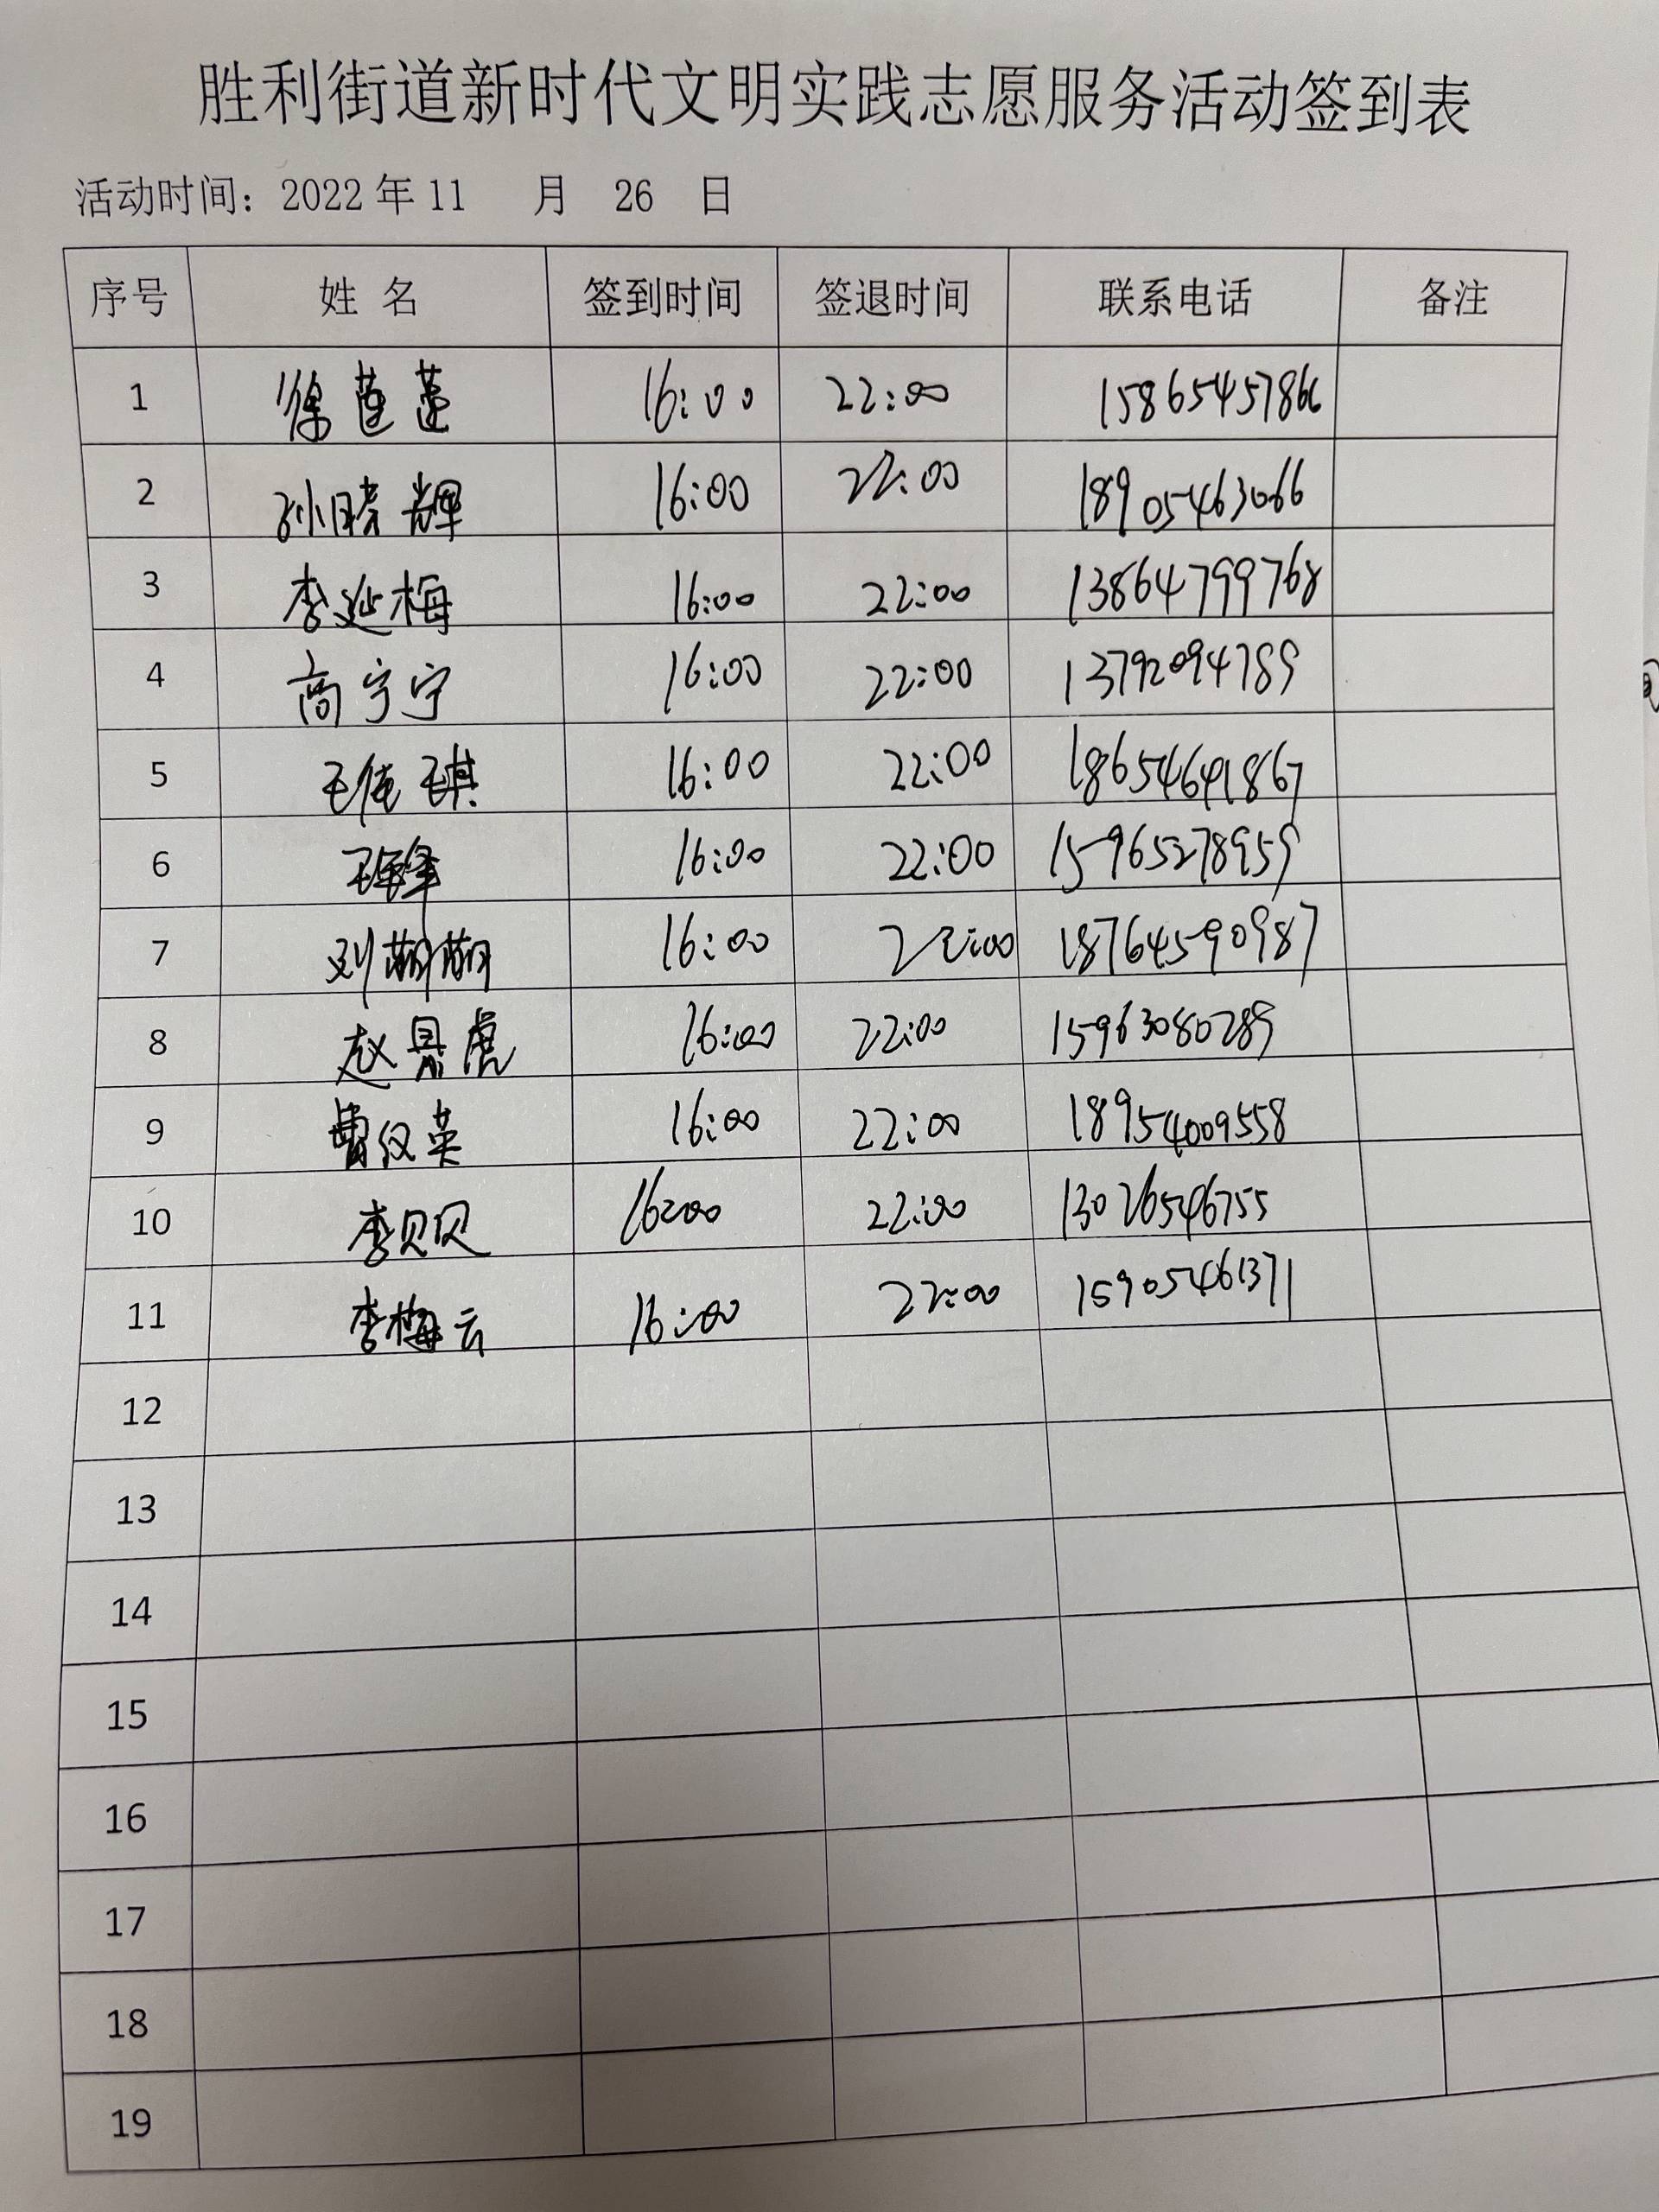 胜利街道新时代文明实践志愿服务活动签到表
活动时间：2022 年 11 月 26 日
序号 姓 名 签到时间 签退时间 联系电话 备注
1 徐莲莲 16:00 22:00 15865457866
2 孙晓辉 16:00 22:00 18905463066
3 李延梅 16:00 22:00 13864799768
4 高宁宁 16:00 22:00 13792094789
5 王倩琪 16:00 22:00 18654641867
6 16:00 22:00 15965278959
7 刘萌萌 16:00 22:00 18764590987
8 赵景虎 16:00 22:00 15963080289
9 曹纹英 16:00 22:00 18954009558
10 李贝贝 16:00 22:00 13026546755
11 李梅云 16:00 22:00 15905461371
12
13
14
15
16
17
18
19